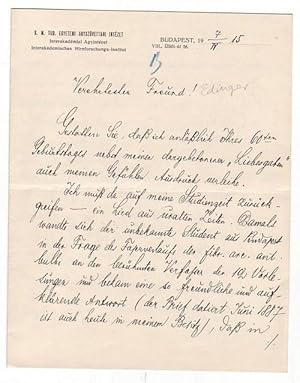 K. M. TUD. EGYETEMI AGYSZÖVETTANI INTÉZET
Interakadémiai Agyintézet
Interakademisches Hirnforschungs-Institut
BUDAPEST, 19 7/IV 15
VIII.,
Verehrtester Freund! Edinger
Gestatten Sie, daß ich anläßlich Ihres 60ten
Geburtstages nebst meinen dargebotenen „Liebesgaben"
auch meinen Gefühlen Ausdruck verleihe.
Ich muß da auf meine Studienzeit zurück
greifen – ein Lied aus uralten Zeiten. Damals
wandte sich der unbekannte Student aus Budapest
in der Frage des Faserverlaufs der fibr. arc. ant.
bulbi an den berühmten Verfasser der 10 Vorle
sungen und bekam eine so freundliche und auf
klärende Antwort (der Brief datiert Juni 1887
ist auch heute in meinem Besitz), daß in